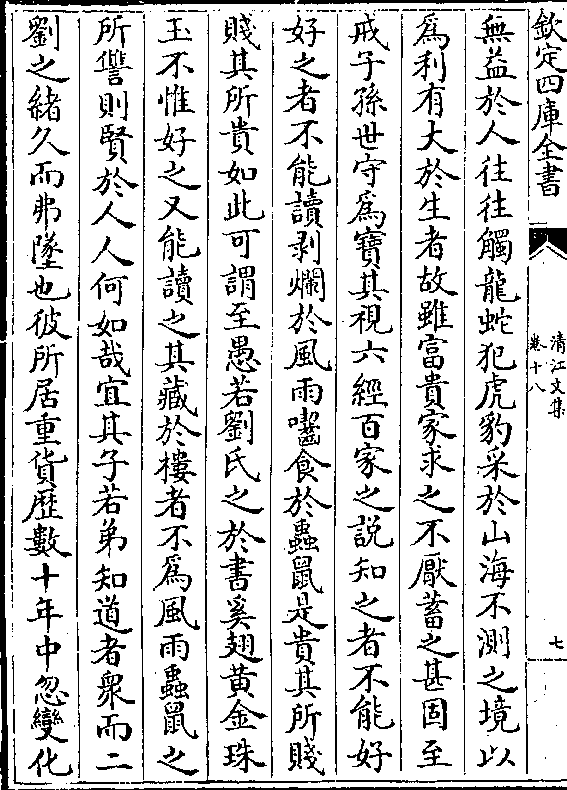 欽定四庫全書
清江文集
卷十八
七
無益於人往往觸龍蛇犯虎豹采於山海不測之境以
爲利有大於生者故雖富貴家求之不厭蓄之甚固至
戒子孫世守爲寶其視六經百家之說知之者不能好
好之者不能讀剥爛於風雨囓食於蟲鼠是貴其所賤
賤其所貴如此可謂至愚若劉氏之於書奚翅黄金珠
玉不惟好之又能讀之其藏於樓者不爲風雨蟲鼠之
所讐則賢於人人何如哉宜其子若弟知道者衆而二
劉之緒久而弗墜也彼所居重貨歴數十年中忽變化